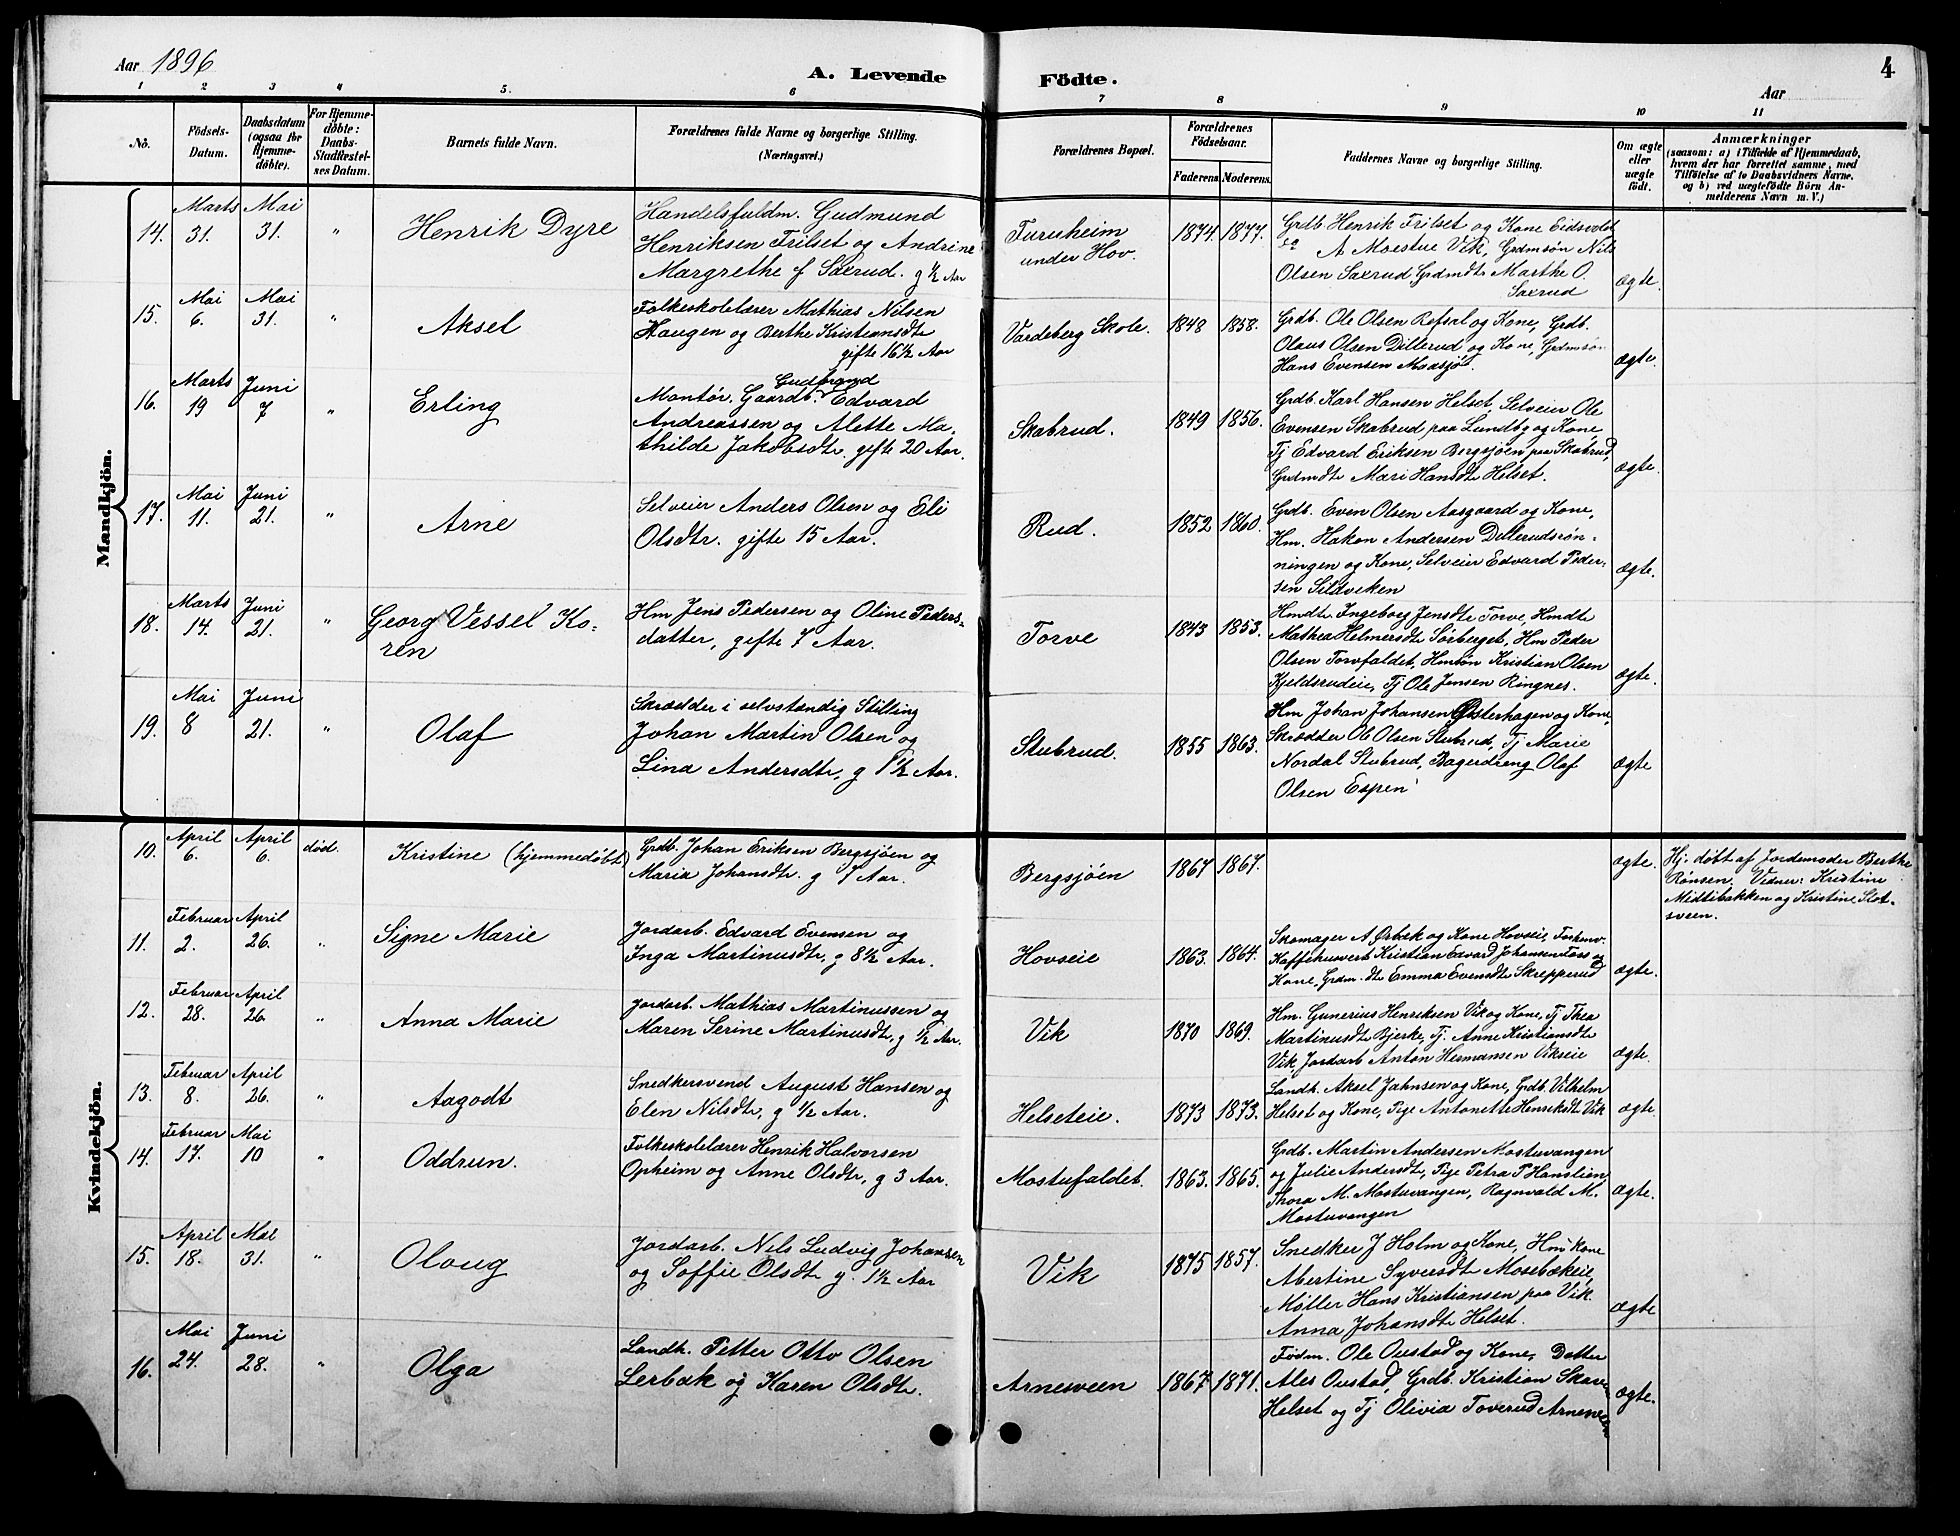 Aar 1896
A. Levende Födte.
4
Aar
1 2 3 4 5. 6 7 8 9 10 11
No.
Födsels-Datum.
Daabsdatum (ogsaa for Hjemmedöbte).
For Hjemmedöbte: Daabs-Stadfæstelses Datum.
Barnets fulde Navn.
Forældrenes fulde Navne og borgerlige Stilling. (Næringsvei.)
Forældrenes Bopæl.
Forældrenes Födselsaar.
Faderens. Moderens.
Faddernes Navne og borgerlige Stilling.
Om ægte eller uægte födt.
Anmærkninger
(saasom: a) i Tilfælde af Hjemmedaab, hvem der har forrettet samme, med Tilföielse af to Daabsvidners Navne. og b) ved uægtefödte Börn Anmelderens Navn m. V.)
Mandkjön.
14. Marts 31. Mai 31. " Henrik Dyre
Handelsfuldm. Gudmund
Henriksen Frilset og Andrine
Margrethe f Saxrud. g ½ Aar
Furuheim
under Hov.
1874. 1877.
Grdb Henrik Frilset og Kone Eidsvold
A Moestue Vik, Grdmsøn Nils
Olsen Saxrud, Grdmdtr Marthe O.
Saxrud
ægte.
15. Mai 6. Mai 31. " Aksel
Folkeskolelærer Mathias Nilsen
Haugen og Berthe Kristiansdtr
gifte 16½ Aar
Vardeberg Skole. 1848 1858.
Grdb. Ole Olsen Refsal og Kone, Grdb.
Olaus Olsen Dillerud og Kone, Grdmsøn
Hans Evensen Maasjø.
ægte.
16. Marts 19 Juni 7 " Erling
Gudbrand
Montør. Gaardb. Edvard
Andreassen og Alette Ma-
thilde Jakobsdtr. gifte 20 Aar.
Skabrud. 1849 1856.
Grdb. Karl Hansen Helset, Selveier Ole
Evensen Skabrud paa Lundby og Kone
Tj Edvard Eriksen Bergsjøen paa Skabrud,
Grdmdtr Mari Hansdtr Helset.
ægte.
17. Mai 11. Juni 21. " Arne
Selveier Anders Olsen og Eli
Olsdtr. gifte 15 Aar.
Rud. 1852 1860.
Grdb. Even Olsen Aasgaard og Kone,
Hm. Hakon Andersen Dillerudsrøn-
ningen og Kone, Selveier Edvard Peder-
sen Sildviken
ægte.
18. Marts 14. Juni 21. " Georg Vessel Ko-
ren
Hm Jens Pedersen og Oline Peders-
datter, gifte 7 Aar.
Torve 1843 1853.
Hmdtr Ingeborg Jensdtr Torve, Hmdtr
Mathea Helmersdtr Sørberget, Hm Peder
Olsen Torvfaldet, Hmsøn Kristian Olsen
Kjeldsrudeie, Tj Ole Jensen Ringnes.
ægte.
19. Mai 8 Juni 21. " Olaf
Skrædder i selvstændig Stilling
Johan Martin Olsen og
Lina Andersdtr, g 1½ Aar.
Stubrud. 1855 1863.
Hm Johan Johansen Østerhagen og Kone,
Skrædder Ole Olsen Stubrud, Tj Marie
Nordal Stubrud, Bagerdreng Olaf
Olsen Espen
ægte
Kvindekjön.
10. April 6. April 6. død. Kristine (hjemmedøbt)
Grdb. Johan Eriksen Bergsjøen og
Maria Johansdtr. g 7 Aar.
Bergsjøen 1867 1867.
ægte.
Hj. døbt af Jordemoder Berthe
Rønsen. Vidner: Kristine
Midtibakken og Kristine Slot-
sveen.
11. Februar 2. April 26. " Signe Marie
Jordarb. Edvard Evensen og
Inga Martinusdtr, g 8½ Aar.
Hovseie 1863. 1864.
Skomager A Ørbæk og Kone Hovseie, Forhenv.
Kaffehusvert Kristian Edvard Johansen Foss og
Kone, Grdm.dtr Emma Evensdtr Skrepperud
ægte.
12. Februar 28. April 26. " Anna Marie
Jordarb. Mathias Martinussen og
Maren Serine Martinusdtr, g ½ Aar.
Vik 1870 1869.
Hm. Gunerius Henriksen Vik og Kone, Tj Thea
Martinusdtr Bjerke, Tj. Anne Kristiansdtr
Vik, Jordarb Anton Hermansen Vikseie
ægte.
13. Februar 8. April 26. " Aagodt
Snedkersvend August Hansen og
Elen Nilsdtr, g ½ Aar.
Helseteie. 1873 1873.
Landh. Aksel Jahnsen og Kone, Grdb. Vilhelm
Helset og Kone, Pige Antonette Henriksdtr Vik
ægte.
14. Februar 17. Mai 10 " Oddrun.
Folkeskolelærer Henrik Halvorsen
Opheim og Anne Olsdtr, g 3 Aar.
Mostufaldet. 1863. 1865.
Grdb. Martin Andersen Mostuvangen
og Julie Andersdtr, Pige Petra P Hanslien,
Thora M. Mostuvangen, Ragnvald M.
Mostuvangen
ægte.
15. April 18. Mai 31. " Oloug
Jordarb. Nils Ludvig Johansen
og Soffie Olsdtr g. 1½ Aar
Vik 1875 1857.
Snedker J Holm og Kone, Hm kone
Abertine Syversdtr Mosebækeie,
Møller Hans Kristiansen paa Vik.
Anna Johansdtr Helset.
ægte
16. Mai 24. Juni 28. " Olga
Landh. Petter Otto Olsen
Lerbæk og Karen Olsdtr.
Arnesveen 1867 1871.
Fødm. Ole Oustad og Kone, Datter
Ales Oustad, Grdb. Kristian Skaven
Helset og Tj Olivia Toverud Arnesveen
ægte.